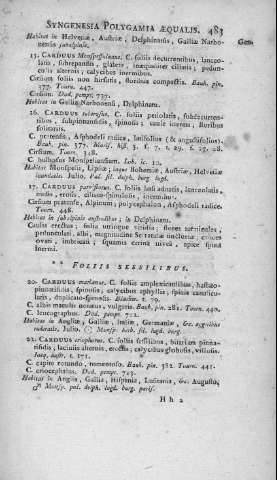 SYNGENESIA POLYGAMIA ÆQUALIS. 483
Habitat in Helvetiæ, Austriæ, Delphinatus, Galliæ Narbo-
nensis subalpinis.
15. CARDUUS Monspessulanus. C. foliis decurrentibus, lanceo-
latis, glabris, inæqualiter ciliatis, pedun-
culis alternis, calycibus inermibus.
Cirsium foliis non hirsutis, floribus compactis. Bauh. pin.
377. Tourn. 447.
Cirsium. Dod. pempt. 737.
Habitat in Gallia Narbonensi, Delphinatu.
16. CARDUUS tuberosus. C. foliis petiolatis, subdecurren-
tibus, subpinnatifidis, spinosis, caule inermi, floribus
solitariis.
C. pratensis, Asphodeli radice, latifolius (& angustifolius).
Bauh. pin. 377. 3. f. 1. 29. f. 27. 28.
Cirsium. Tourn. 448.
C. bulbosus Monspeliensium. Lob. ic. 10.
Habitat Monspelii, Lipsiæ; inque Bohemiæ, Austriæ, Helvetiæ
Julio.
17. CARDUUS C. foliis lanceolatis,
Cirsium pratense, Alpinum; polycephalon; Asphodeli radice.
Tourn. 448.
Habitat in subalpinis in Delphinatu.
Caulis erectus; folia utrinque viridia; flores terminales;
pedunculati, albi, magnitudine calyces
ovati, imbricati; squamis carina nivea, apice spina
inermi.
* * FOLIIS SESSILIBUS.
20. CARDUUS marianus. C. foliis amplexicaulibus, hastato-
pinnatifidis, spinosis, calycibus aphyllis, spinis canalicu-
latis, duplicato-spinosis. Blackw. t. 79.
C. albis maculis notatus, vulgaris. Bauh. pin. 381. Tourn. 440.
C. leucographus. Dod. pempt. 722.
Habitat in Angliæ, Galliæ, Italiæ, Germaniæ, Gc. aggeribus
ruderatis. Julio.
22. CARDUUS eriophorus. C. foliis sessilibus, bifariam pin-
natifidis, laciniis alternis, erectis, calycibus globosis, villosis.
Jacq. austr. t. 171.
C. capite rotundo, tomentoso. Bauh. pin. 382 Tourn. 441.
C. eriocephalus. Dod. pempt. 723.
Habitat in Anglia, Gallia, Hispania, Lusitania, Gc. Augusto.
H h 2